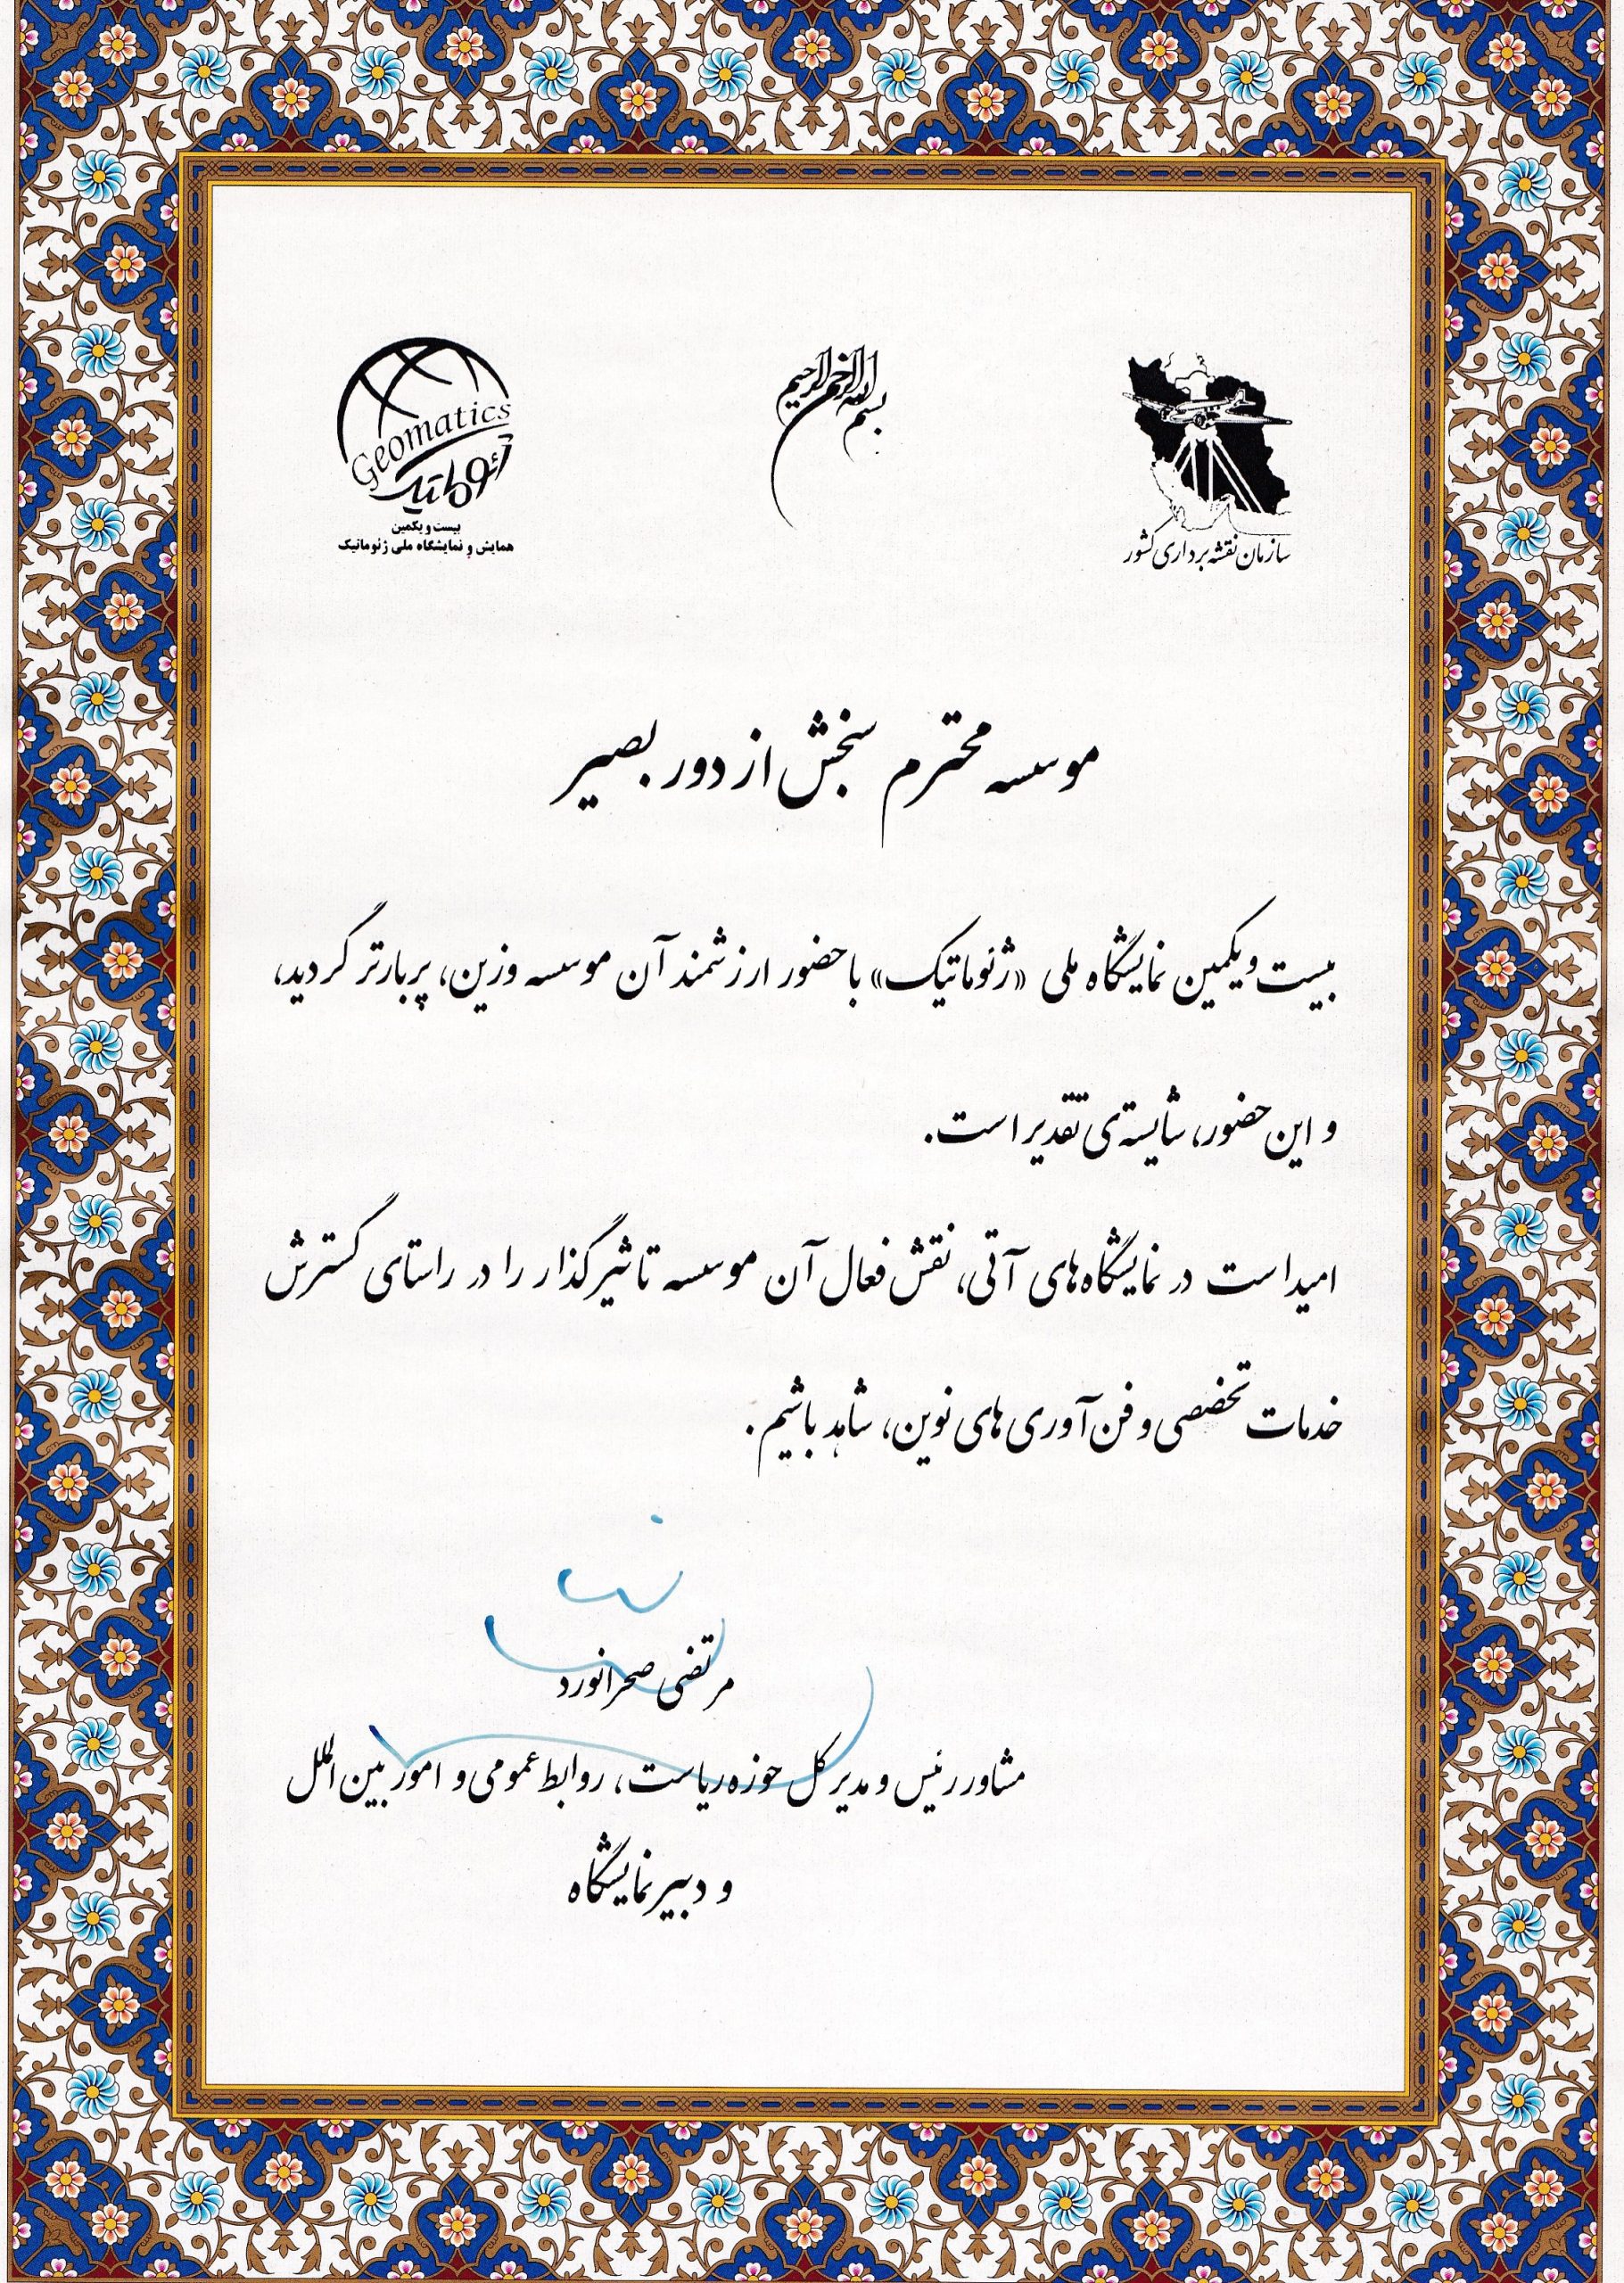 بسم الله الرحمن الرحیم
سازمان نقشه برداری کشور
Geomatics
ژئوماتیک
بیست و یکمین
همایش و نمایشگاه ملی ژئوماتیک
موسسه محترم سنجش از دور بصیر
بیست و یکمین نمایشگاه ملی «ژئوماتیک» با حضور ارزشمند آن موسسه وزین، پربارتر گردید،
و این حضور، شایسته‌ی تقدیر است.
امید است در نمایشگاه‌های آتی، نقش فعال آن موسسه تاثیرگذار را در راستای گسترش
خدمات تخصصی و فن‌آوری‌های نوین، شاهد باشیم.
مرتضی صحرانورد
مشاور رئیس و مدیر کل حوزه ریاست، روابط عمومی و امور بین الملل
و دبیر نمایشگاه